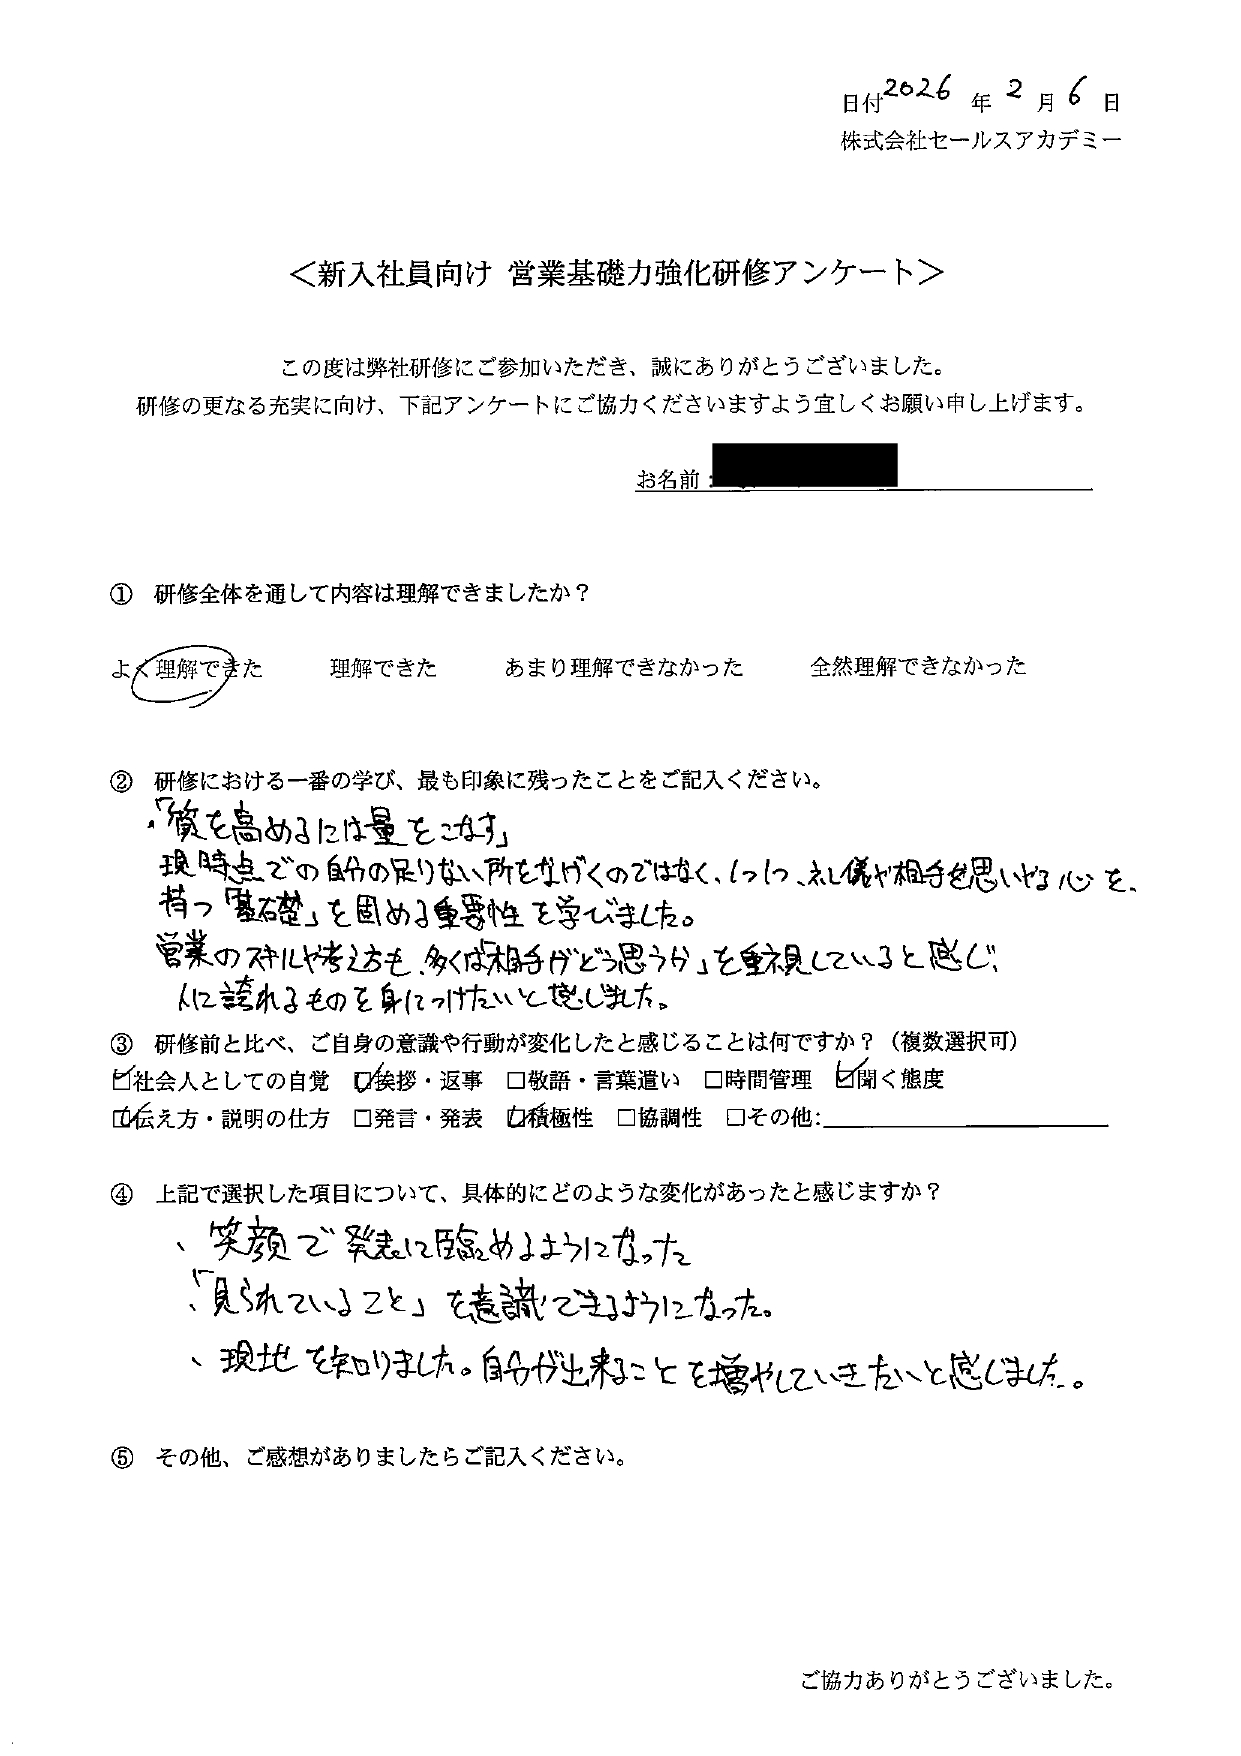 日付2026年2月6日
株式会社セールスアカデミー
＜新入社員向け 営業基礎力強化研修アンケート＞
この度は弊社研修にご参加いただき、誠にありがとうございました。
研修の更なる充実に向け、下記アンケートにご協力くださいますよう宜しくお願い申し上げます。
お名前：
① 研修全体を通して内容は理解できましたか？
よく理解できた 理解できた あまり理解できなかった 全然理解できなかった
② 研修における一番の学び、最も印象に残ったことをご記入ください。
・「質を高めるには量をこなす」
現時点での自分の足りない所をなげくのではなく、1つ1つ、礼儀や相手を思いやる心を、
持つ「基礎」を固める重要性を学びました。
営業のスキルや考え方も、多くは「相手がどう思うか」を重視していると感じ、
人に誇れるものを身につけたいと感じました。
③ 研修前と比べ、ご自身の意識や行動が変化したと感じることは何ですか？（複数選択可）
☑社会人としての自覚 ☑挨拶・返事 □敬語・言葉遣い □時間管理 ☑聞く態度
☑伝え方・説明の仕方 □発言・発表 ☑積極性 □協調性 □その他:
④ 上記で選択した項目について、具体的にどのような変化があったと感じますか？
、笑顔で発表に臨めるようになった
、「見られていること」を意識できるようになった。
、現地を知りました。自分が出来ることを増やしていきたいと感じました。
⑤ その他、ご感想がありましたらご記入ください。
ご協力ありがとうございました。